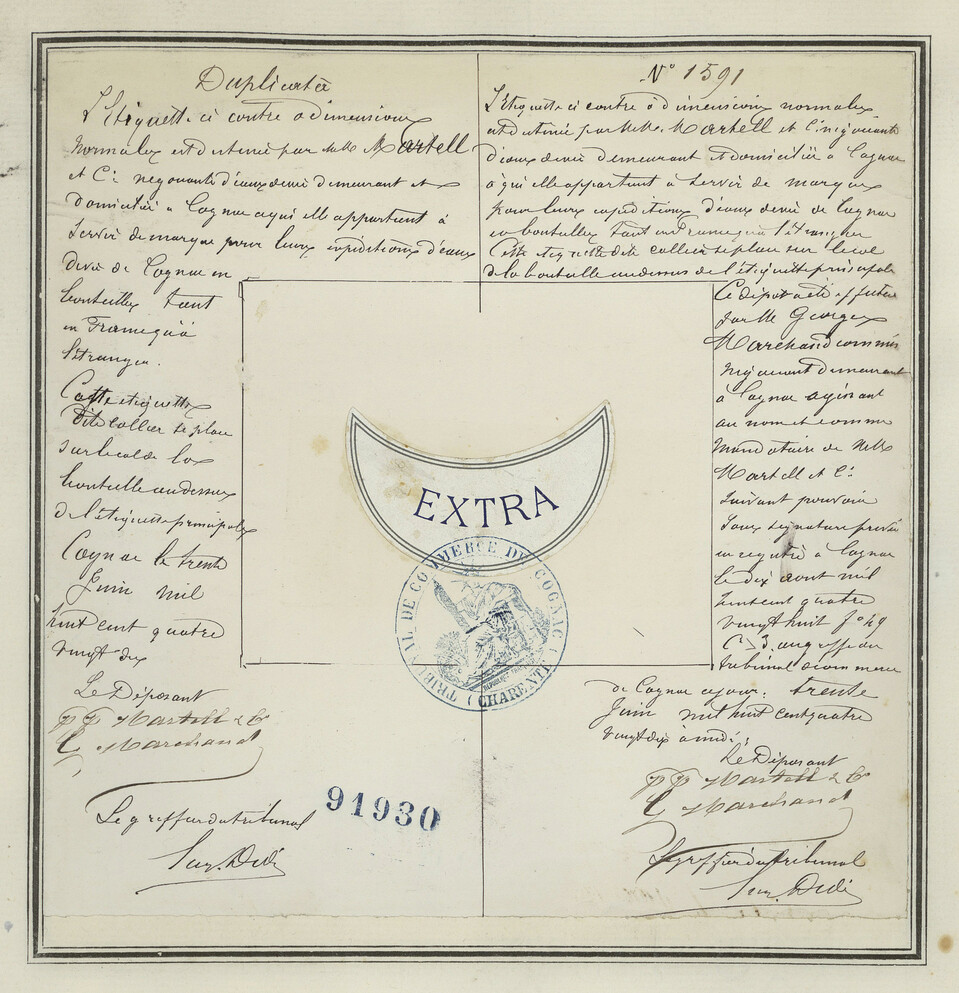 Duplicata
L'Etiquette ci contre à dimensions
normales est destinée par MM. Martell
et Cie négociants d'eaux de vie demeurant et
domiciliés à Cognac à qui elle appartient à
servir de marque pour leurs expéditions d'eaux
de vie de Cognac en
bouteilles tant
en France qu'à
l'étranger.
Cette etiquette
dite collier se place
sur le col de la
bouteille au dessus
de l'étiquette principale
Cognac le trente
Juin mil
huit cent quatre
vingt dix
Le Déposant
PP Martell & Co
G Marchand
Le greffier du tribunal
No 1591
L'Etiquette ci contre à dimensions normales
est destinée par MM. Martell et Cie négociants
d'eaux de vie demeurant et domiciliés à Cognac
à qui elle appartient à servir de marque
pour leurs expéditions d'eaux de vie de Cognac
en bouteilles tant en France qu'à l'étranger
Cette etiquette dite collier se place sur le col
de la bouteille au dessus de l'étiquette principale
Ce dépôt a été effectué
par M Georges
Marchand commis
négociant demeurant
à Cognac agissant
au nom et comme
mandataire de MM
Martell et Cie
suivant pouvoir
sous signature privée
enregistré à Cognac
le dix aout mil
huit cent quatre
vingt huit fo 49
C 3 au greffe du
tribunal de commerce
de Cognac ce jour: trente
Juin mil huit cent quatre
vingt dix à midi;
Le Déposant
PP Martell & Co
G Marchand
Le greffier du tribunal
EXTRA
TRIBUNAL DE COMMERCE DE COGNAC
(CHARENTE)
91930